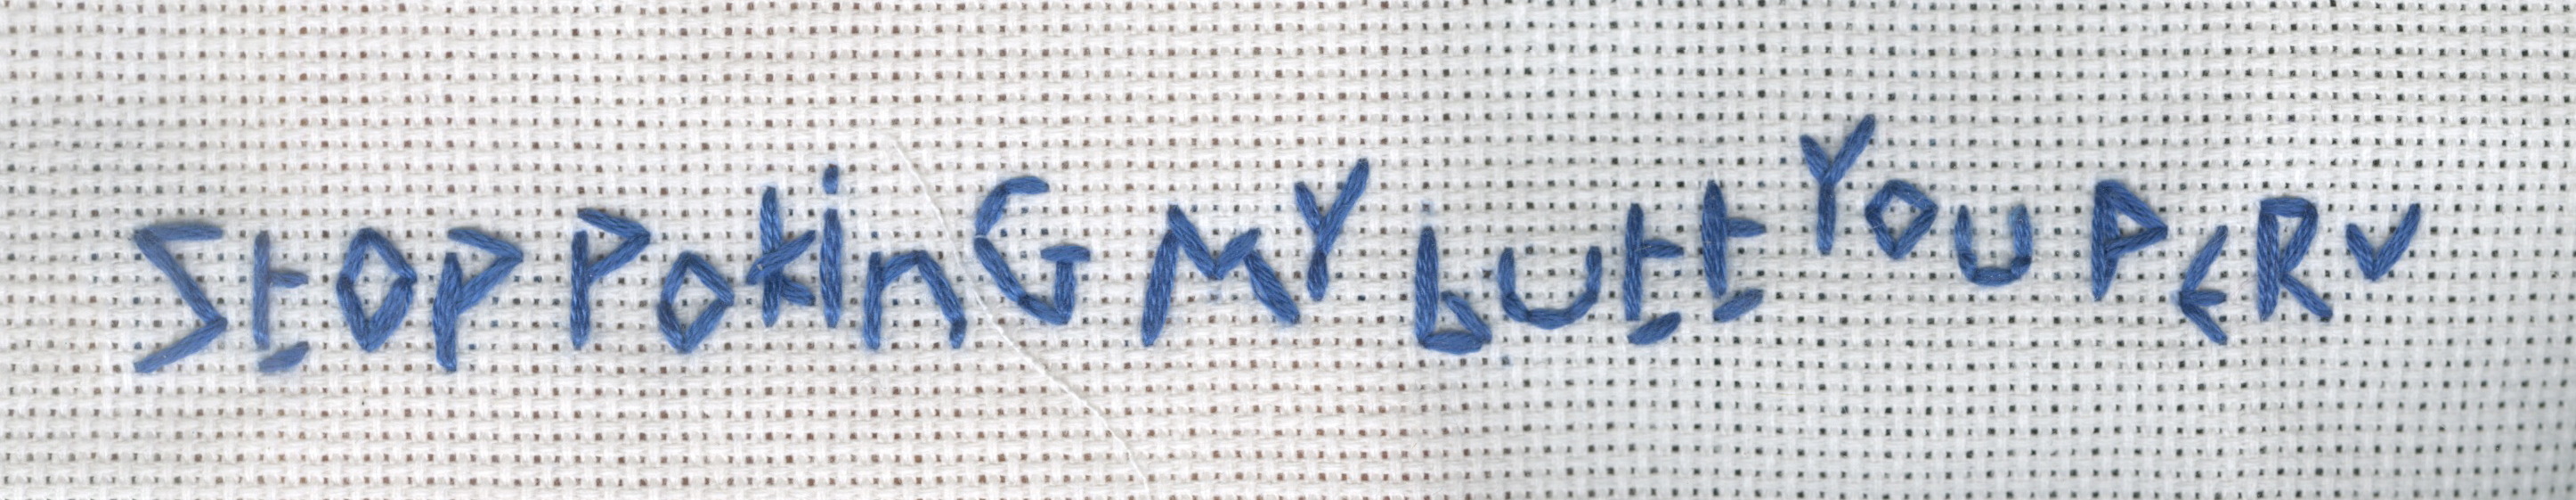 StOP POkinG MY butt YOU PERV